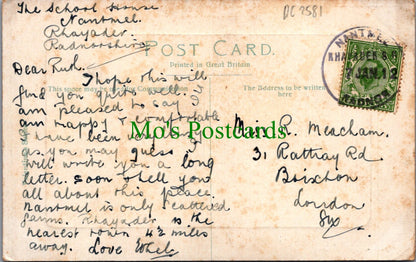 The School House
Nantmel.
Rhayader
Radnorshire
DC 2581
POST CARD.
Printed in Great Britain.
NANTMEL
RHAYADER S.O
JAN 12
RADNOR
This space may be used for Communication
The Address to be written here.
Dear Ruth.
I hope this will
find you
am pleased to say I
am happy & comfortable
I have been very
as you may guess.
will write you a long
letter soon & tell you
all about this place.
Nantmel is only scattered
farms. Rhayader is the
nearest town 4½ miles
away. Love Ethel
Miss R. Meacham.
31 Rattray Rd
Brixton
London
SW
Mo's Postcards